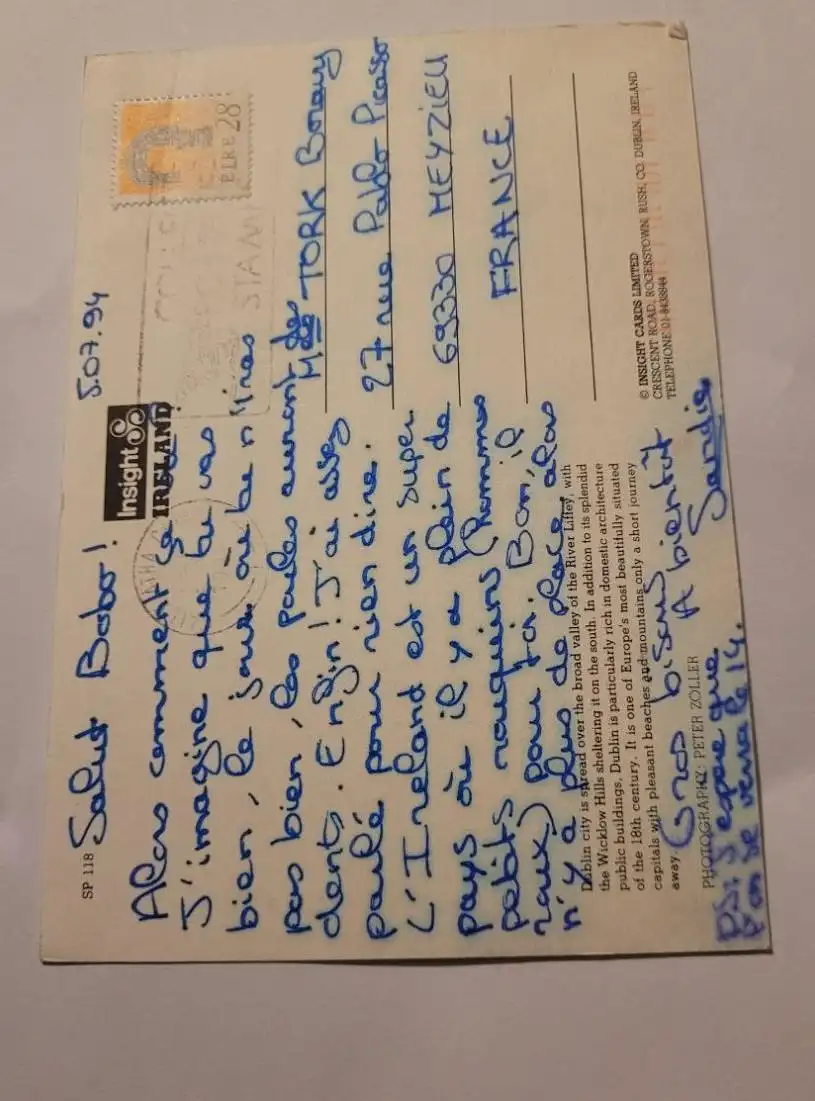 SP 118
Salut Babo!
5.07.94
Insight
IRELAND
Alors comment ça va?
J'imagine que tu vas
bien, le jour où tu n'iras
pas bien, les poules auront des
dents. Enfin! J'ai assez
parlé pour rien dire.
L'Ireland est un super
pays où il y a plein de
petits rouquins (hummm
raux) pour toi. Bon, il
n'y a plus de place alors
Gros bisous
A bientôt
Sandie
PS: J'espère que
l'on se verra le 14.
EIRE 28
COLLEC
STAM
Mlle TORK Borany
27 rue Pablo Picasso
69330 MEYZIEU
FRANCE
Dublin city is spread over the broad valley of the River Liffey, with
the Wicklow Hills sheltering it on the south. In addition to its splendid
public buildings, Dublin is particularly rich in domestic architecture
of the 18th century. It is one of Europe's most beautifully situated
capitals with pleasant beaches and mountains only a short journey
away.
PHOTOGRAPHY: PETER ZOLLER
© INSIGHT CARDS LIMITED
CRESCENT ROAD, ROGERSTOWN, RUSH, CO. DUBLIN, IRELAND
TELEPHONE 01-8438944